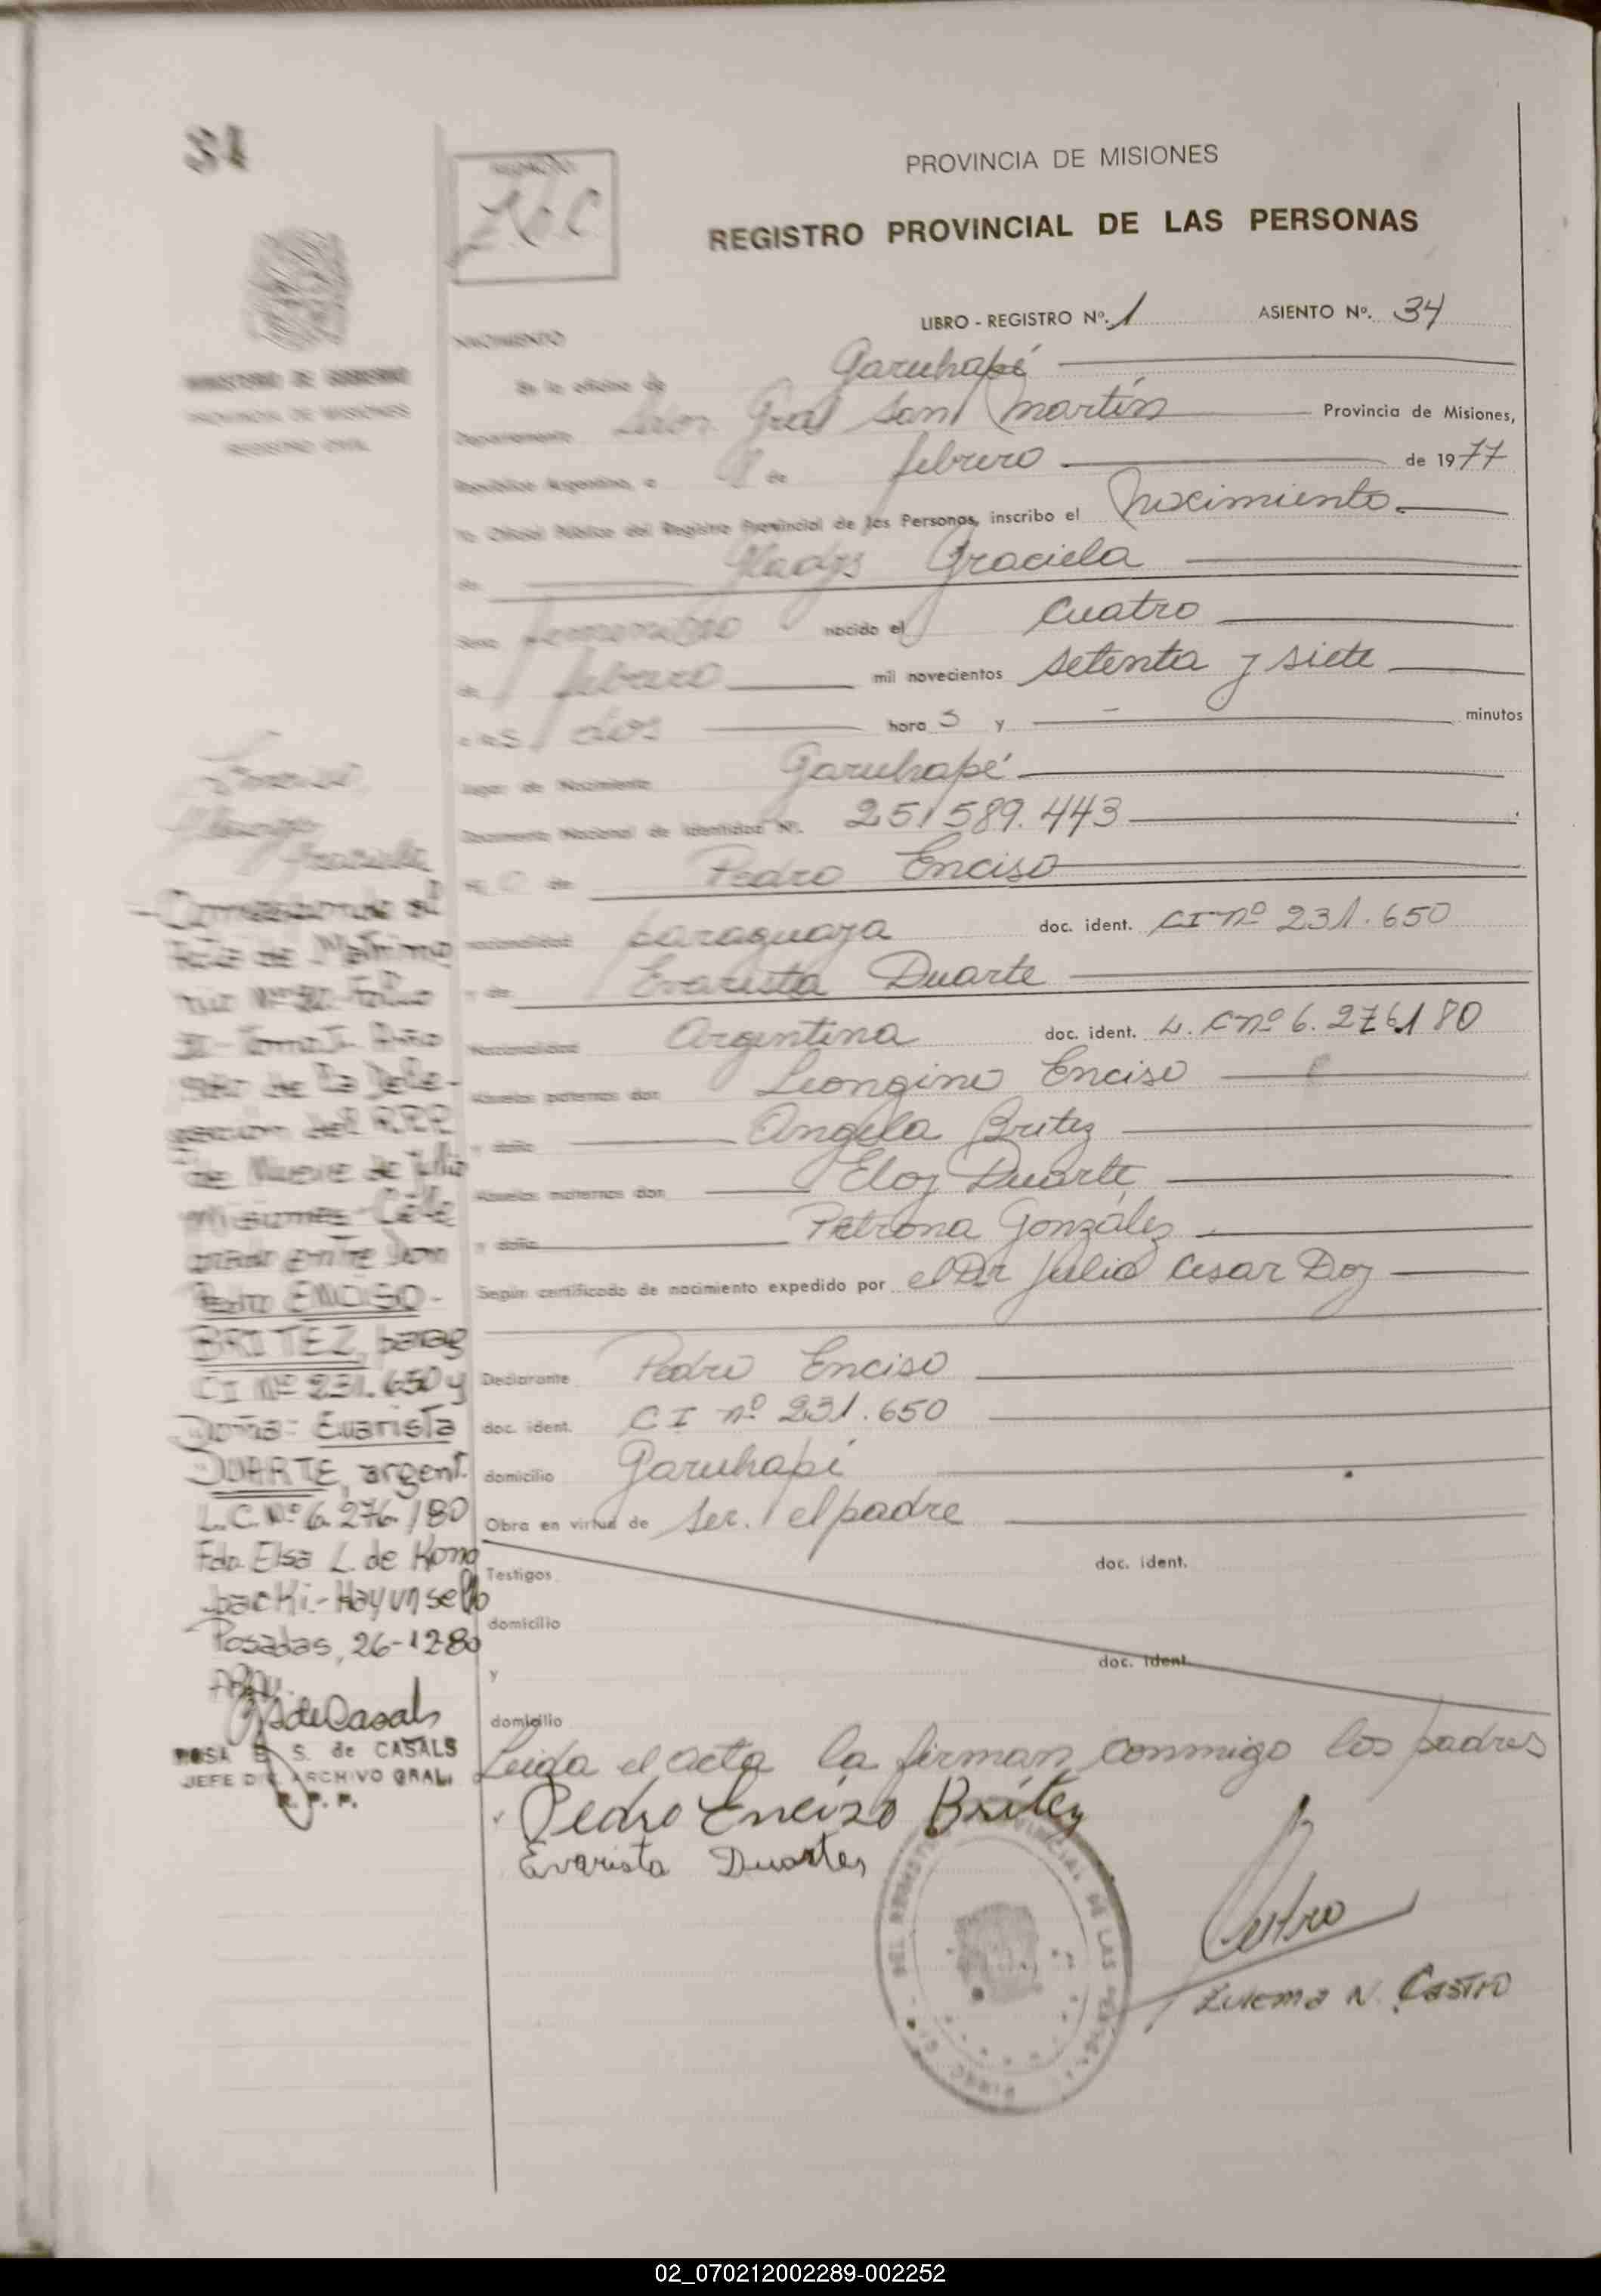 34
PROVINCIA DE MISIONES
REGISTRO PROVINCIAL DE LAS PERSONAS
LIBRO - REGISTRO Nº. 1 ASIENTO Nº. 34
NACIMIENTO
En la oficina de Garuhapé
Departamento Gral San Martín Provincia de Misiones,
República Argentina, a 8 de febrero de 1977
Yo Oficial Público del Registro Provincial de las Personas, inscribo el nacimiento.
de Gladys Graciela
Sexo femenino nacido el cuatro
de febrero mil novecientos setenta y siete
a las dos hora s y - minutos
Lugar de Nacimiento Garuhapé
Documento Nacional de Identidad Nº. 25.589.443
Hijo de Pedro Enciso
nacionalidad paraguaya doc. ident. CI nº 231.650
y de Evarista Duarte
Nacionalidad Argentina doc. ident. L. C nº 6.276180
Abuelos paternos don Leongino Enciso
y doña Angela Britez
Abuelos maternos don Eloy Duarte
y doña Petrona González
Según certificado de nacimiento expedido por el Dr Julio Cesar Doz
Declarante Pedro Enciso
doc. ident. C I nº 231.650
domicilio Garuhapé
Obra en virtud de ser el padre
Testigos doc. ident.
domicilio
y doc. ident.
domicilio
Leida el acta la firman conmigo los padres
Pedro Encizo Britez
Evarista Duartes
Castro
Zulema N. Castro
MINISTERIO DE GOBIERNO
PROVINCIA DE MISIONES
REGISTRO CIVIL
Graciela
- Corresponde al
Acta de Matrimo
nio Folio
Tomo I. Año
de la Dele-
gación del RPP
de Nueve de Julio
Misiones- Cele
brado entre Don
Pedro ENCISO-
BRITEZ, parag
CI Nº 231.650 y
Doña: Evarista
DUARTE, argent.
L.C. Nº 6.276.180
Fdo. Elsa L. de Kono
packi.- Hay un sello
Posadas, 26-12-80
de Casals
ROSA S. de CASALS
JEFE DIV. ARCHIVO GRAL.
R. P. P.
02_070212002289-002252